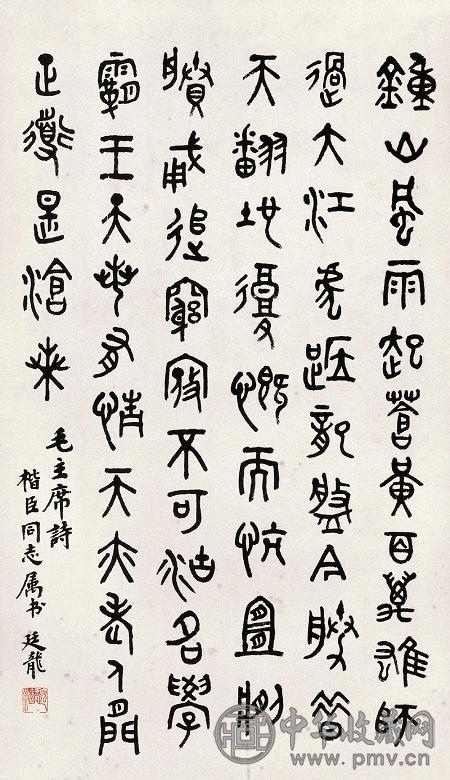 鍾山風雨起蒼黃百萬雄師
過大江虎踞龍盤今勝昔
天翻地覆慨而慷宜將
賸勇追窮寇不可沽名學
霸王天若有情天亦老人間
正道是滄桑
毛主席詩
楷臣同志属书 廷龍
中华收藏网
www.pmv.cn